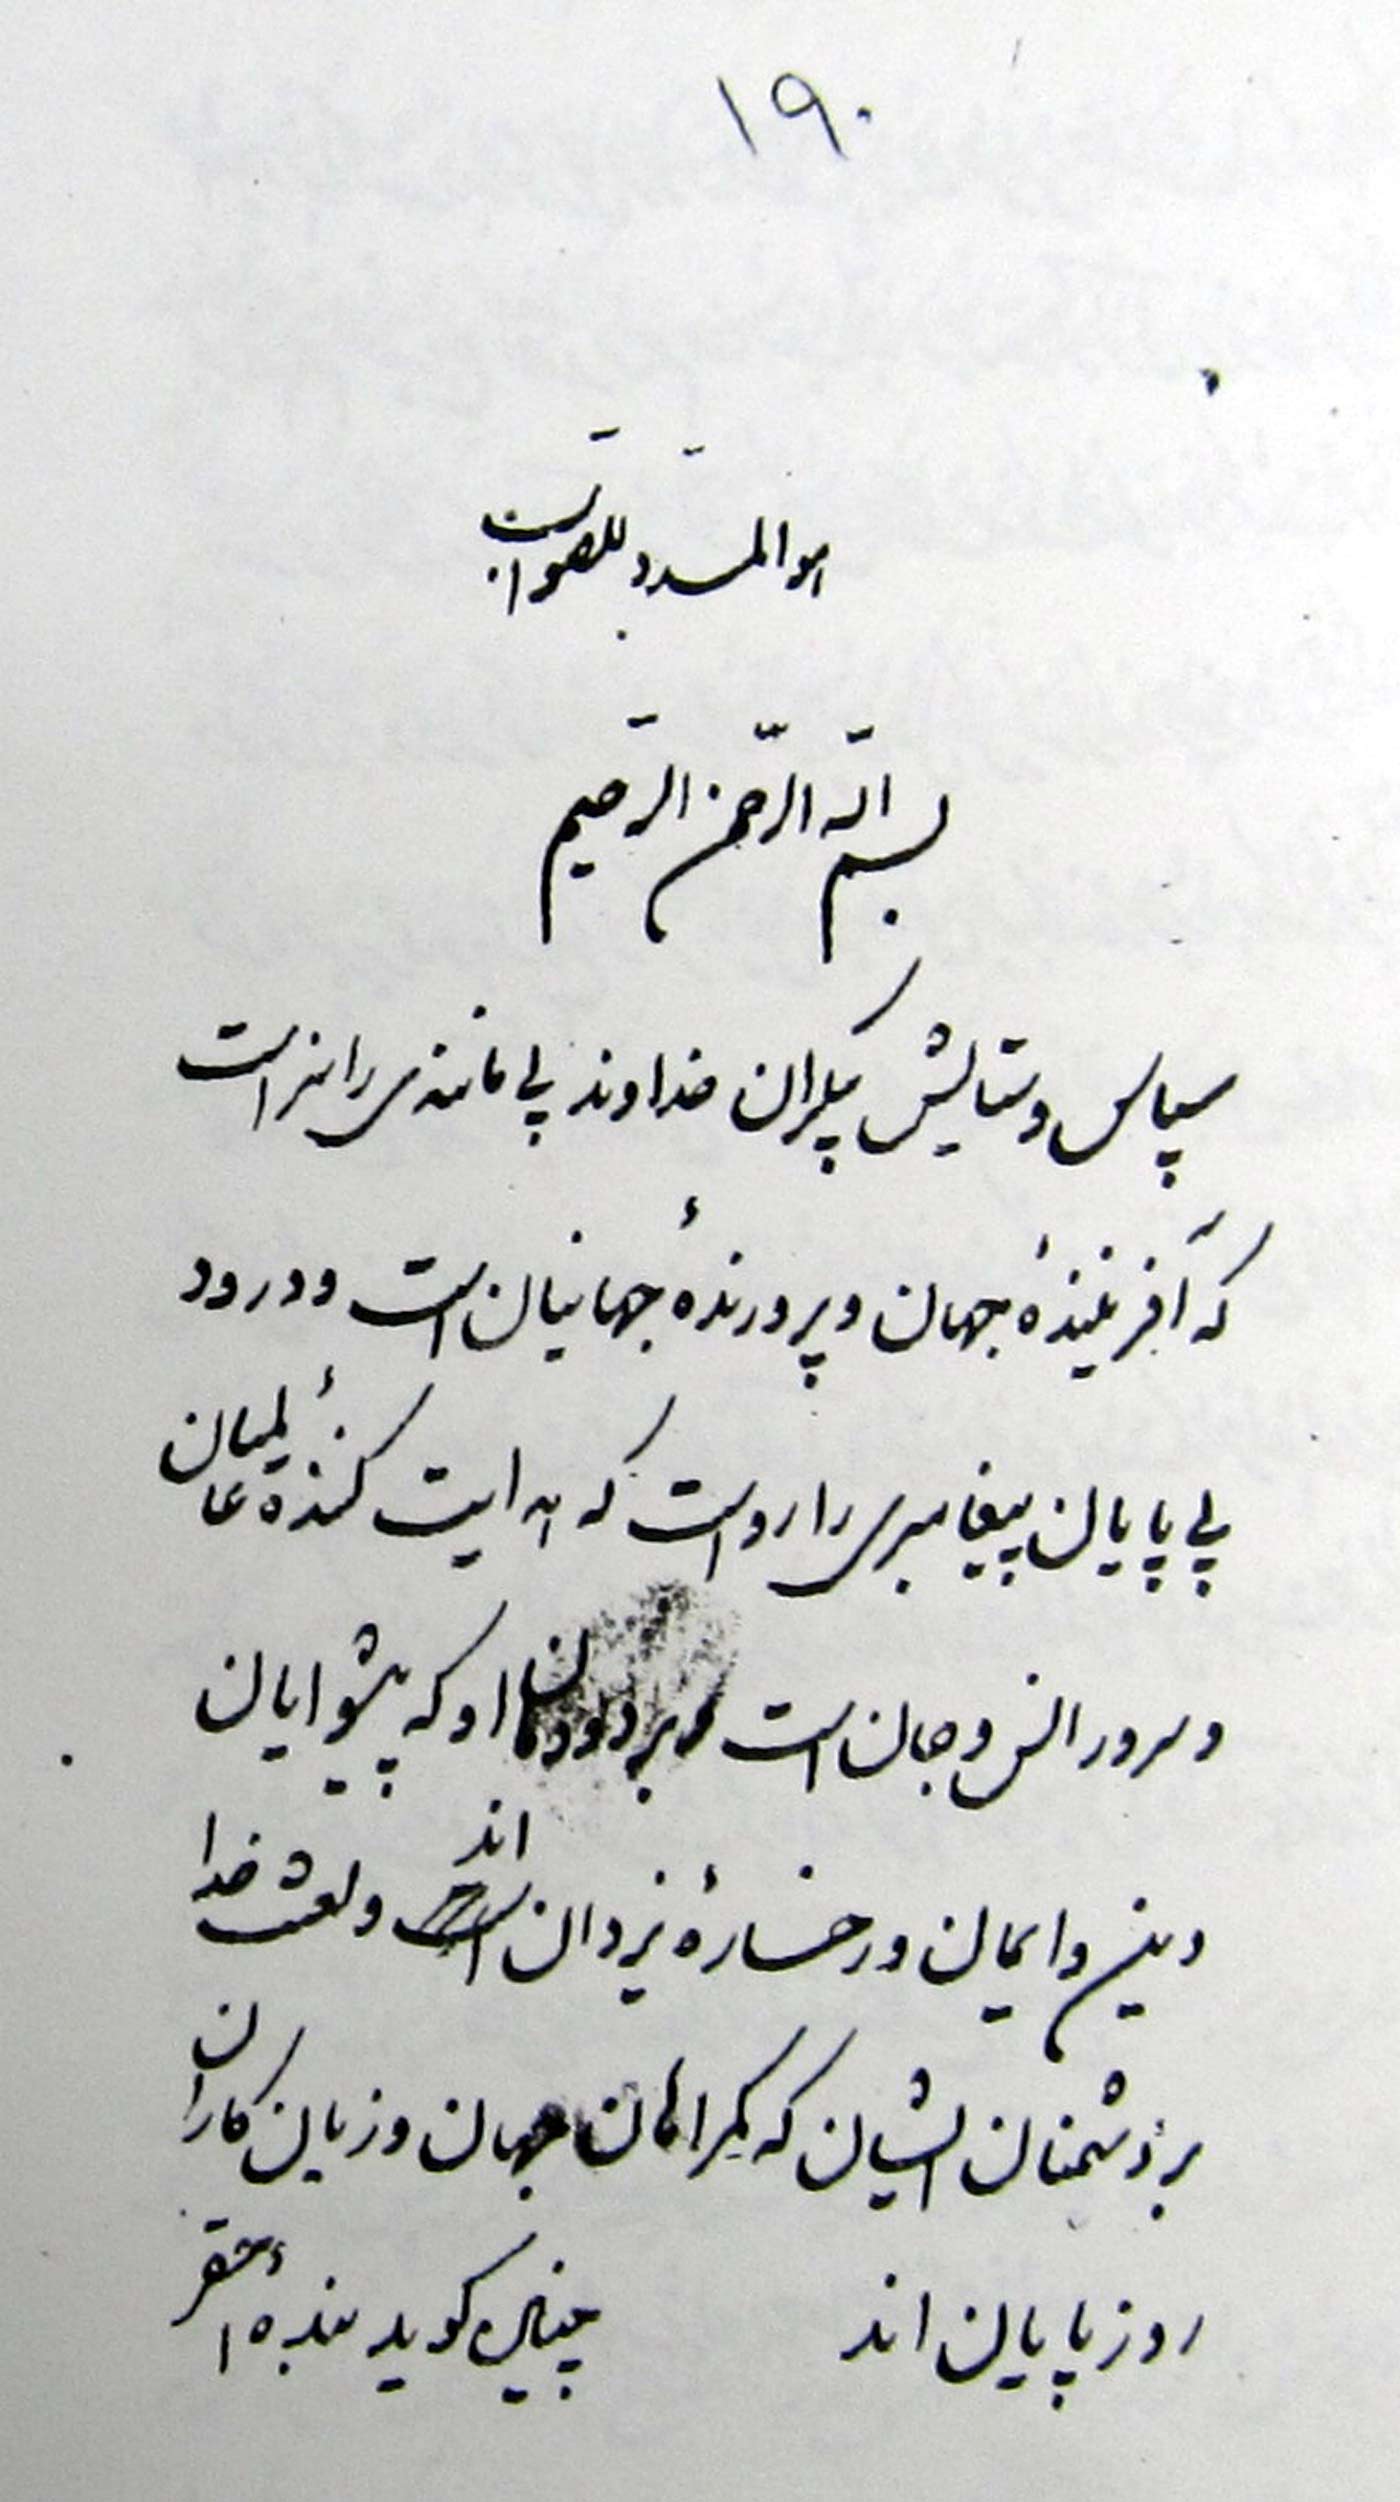 ۱۹۰
هو المسدد للصواب
بسم الله الرّحمن الرّحیم
سپاس و ستایش بیکران خداوند بی مانندی را سزاست
که آفریننده‌ٔ جهان و پرورنده‌ٔ جهانیان است و درود
بی پایان پیغامبری را رواست که هدایت کننده‌ٔ عالمیان
و سرور انس و جان است و بر دودمان او که پیشوایان
دین و ایمان و رخساره‌ٔ یزدان اند و لعنت خدا
بر دشمنان ایشان که گمراهان جهان و زیان کاران
روز پایان اند چنین گوید بنده‌ٔ احقر